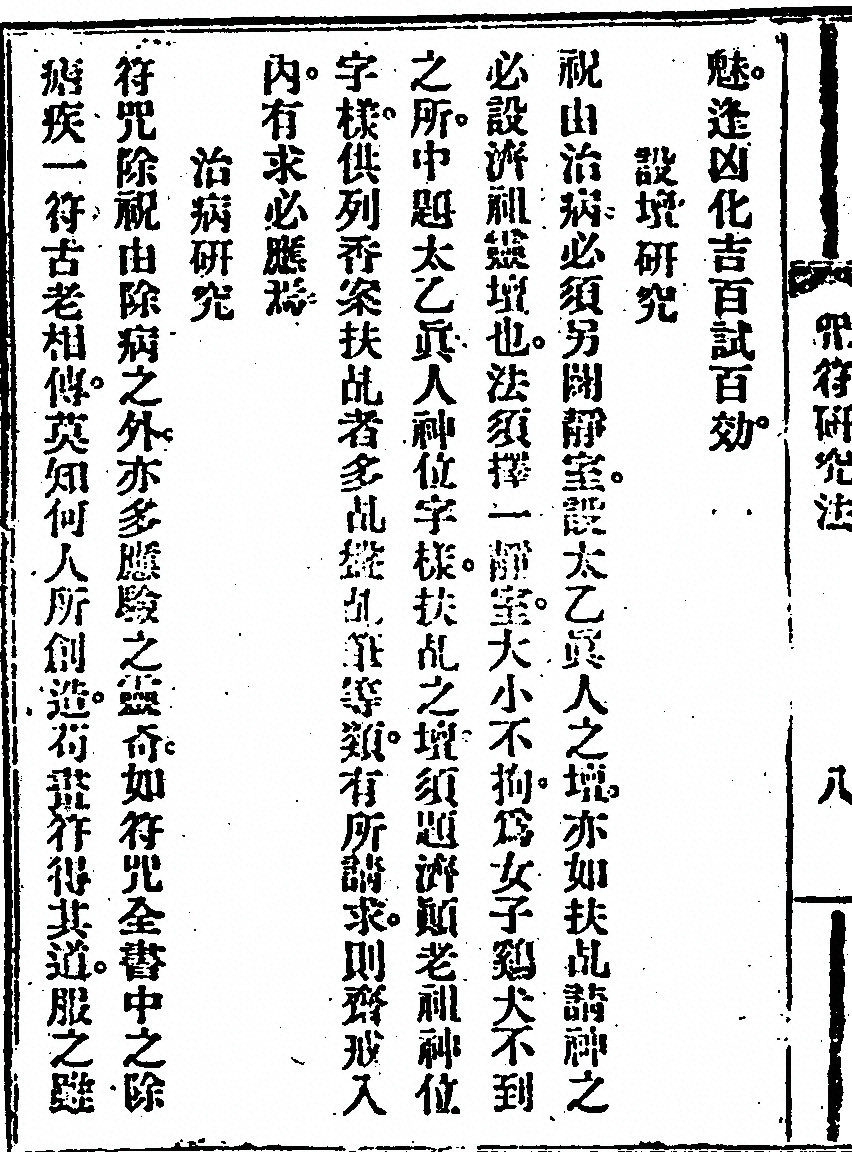 咒符研究法
八
魅。逢凶化吉百試百効。
設壇研究
祝由治病。必須另閉靜室。設太乙眞人之壇。亦如扶乩請神之
必設濟祖靈壇也。法須擇一靜室。大小不拘。爲女子鷄犬不到
之所。中題太乙眞人神位字樣。扶乩之壇。須題濟顚老祖神位
字樣。供列香案扶乩者多乩盤乩筆等類。有所請求。則齊戒入
內。有求必應焉。
治病研究
符咒除祝由除病之外。亦多應驗之靈奇。如符咒全書中之除
瘧疾一符。古老相傳。莫知何人所創造。苟書符得其道。服之雖